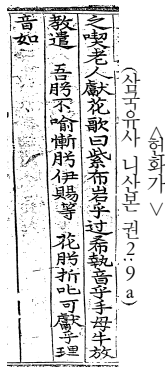 <헌화가>
(삼국유사 니산본 권2. 9a)
之喫老人獻花歌曰紫布岩乎过希執音乎手母牛放
教遣 吾肹不喻慚肹伊賜等 花肹折叱可獻乎理
音如